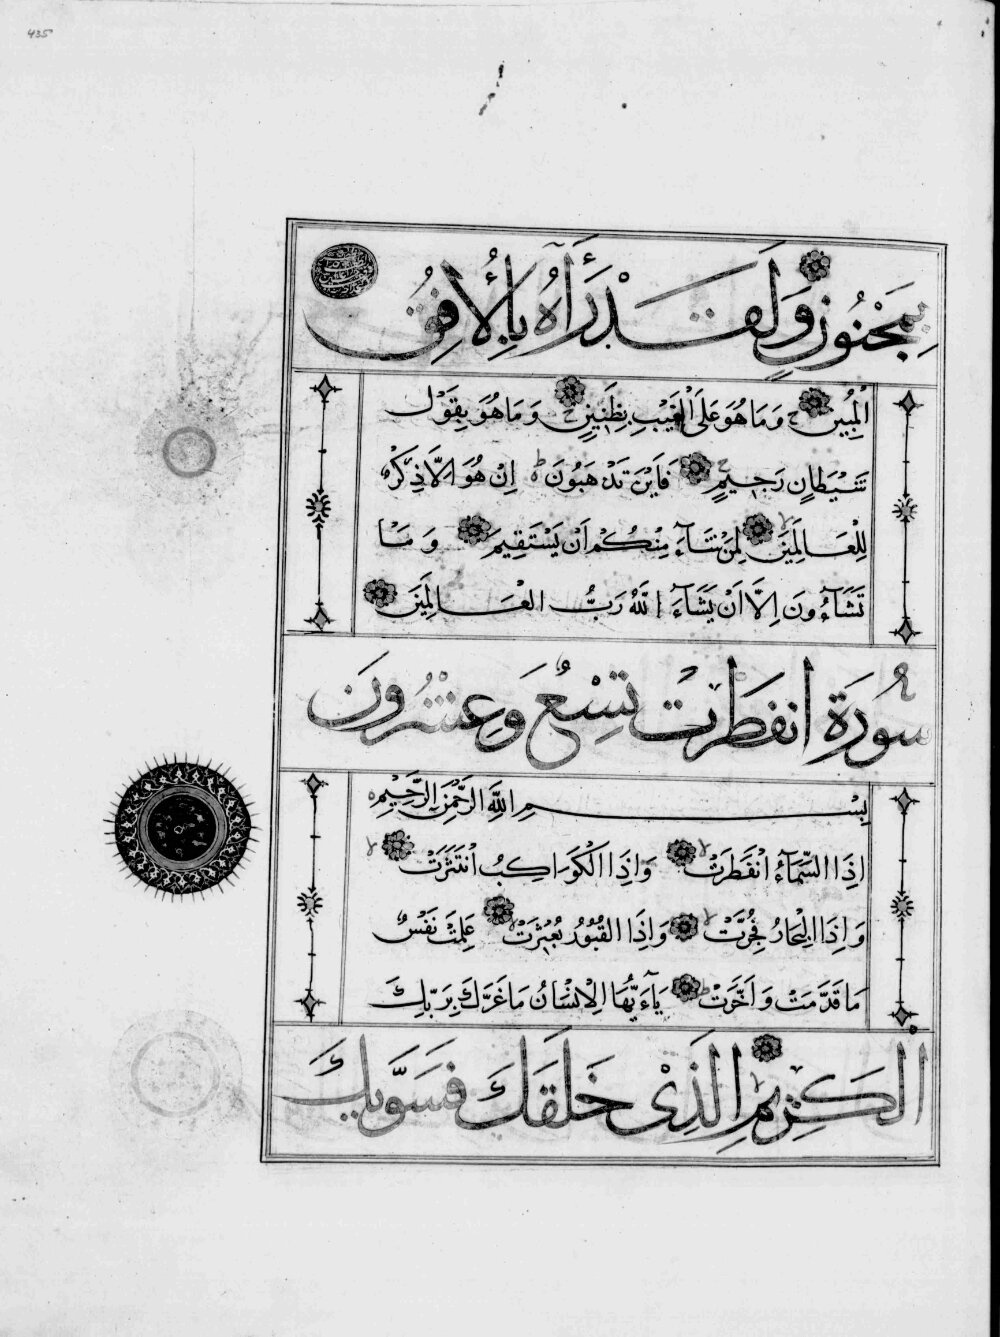 435
بِمَجْنُونٍ وَلَقَدْ رَأٰهُ بِالْأُفُقِ
الْمُبِينِ وَمَا هُوَ عَلَى الْغَيْبِ بِظَنِينٍ وَمَا هُوَ بِقَوْلِ
شَيْطَانٍ رَجِيمٍ فَاَيْنَ تَذْهَبُونَ اِنْ هُوَ اِلَّا ذِكْرٌ
لِلْعَالَمِينَ لِمَنْ شَآءَ مِنْكُمْ اَنْ يَسْتَقِيمَ وَمَا
تَشَآءُونَ اِلَّا اَنْ يَشَآءَ اللّٰهُ رَبُّ الْعَالَمِينَ
سُورَةُ انفطرت تِسْعٌ وَعِشْرُونَ
بِسْمِ اللّٰهِ الرَّحْمٰنِ الرَّحِيمِ
اِذَا السَّمَآءُ انْفَطَرَتْ وَاِذَا الْكَوَاكِبُ انْتَثَرَتْ
وَاِذَا الْبِحَارُ فُجِّرَتْ وَاِذَا الْقُبُورُ بُعْثِرَتْ عَلِمَتْ نَفْسٌ
مَا قَدَّمَتْ وَاَخَّرَتْ يَآءَيُّهَا الْاِنْسَانُ مَا غَرَّكَ بِرَبِّكَ
الْكَرِيمِ الَّذِى خَلَقَكَ فَسَوّٰيكَ